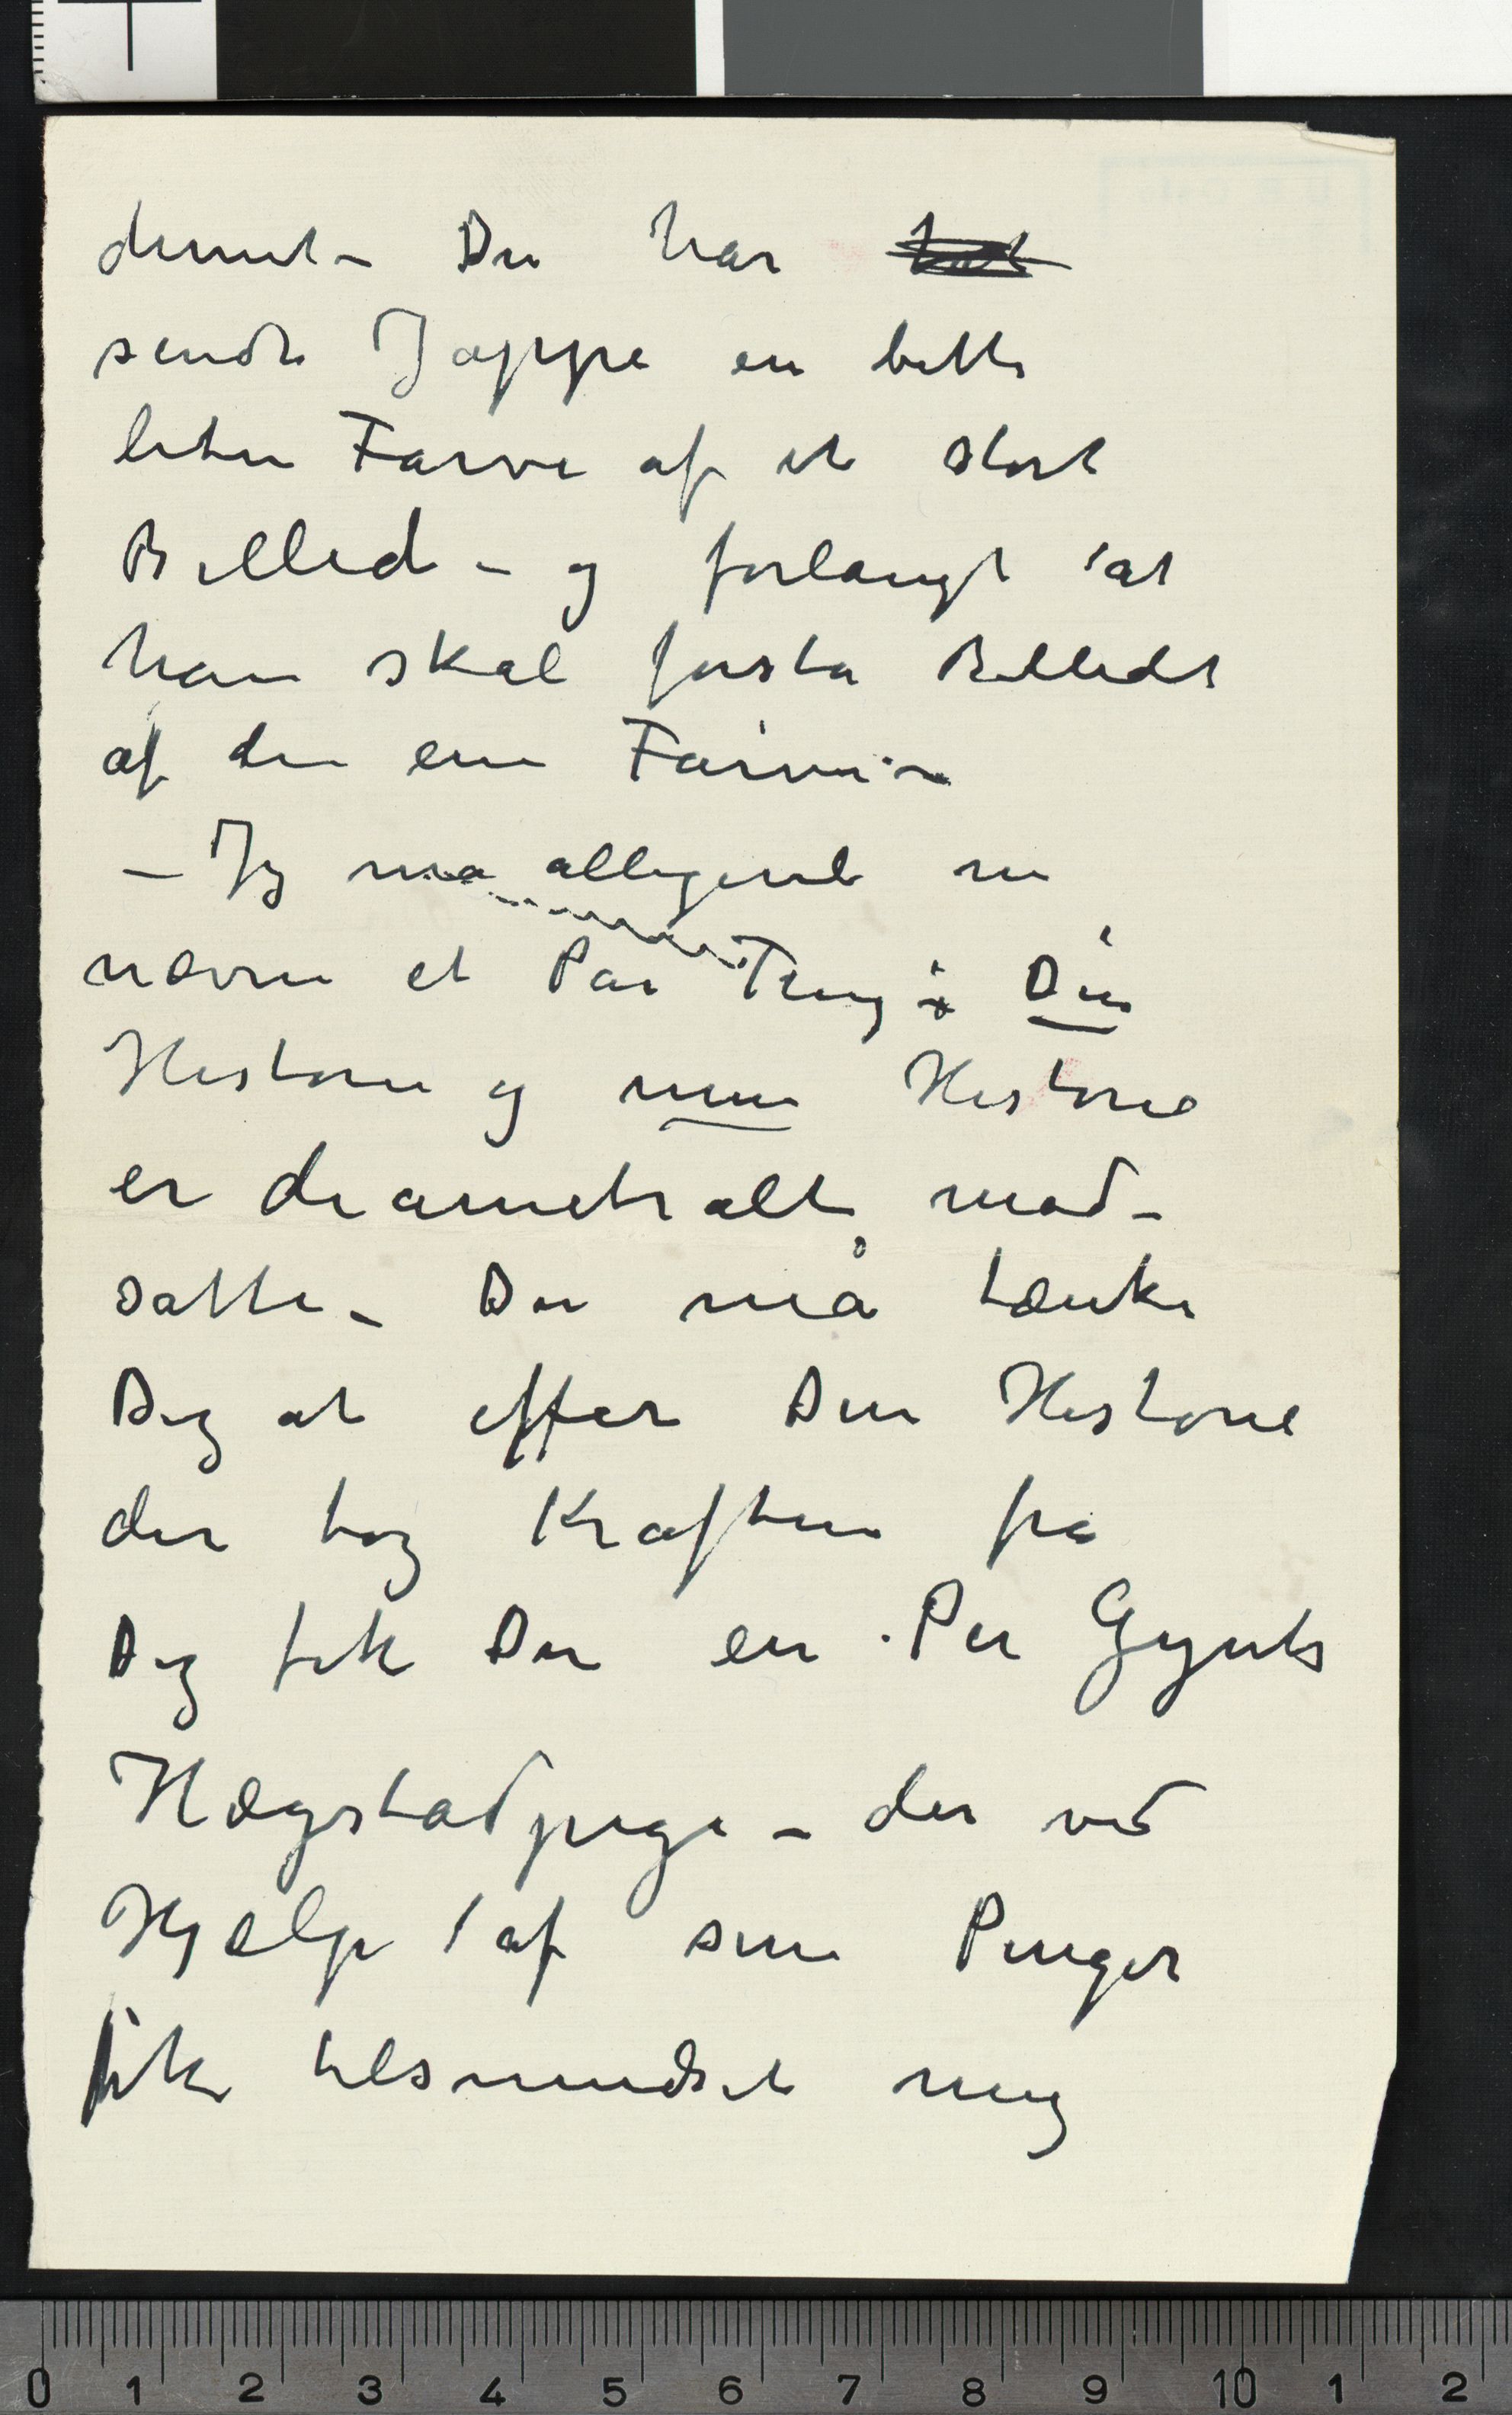 dømt – Du har
sendt Jappe en bitte
liten Farve af et stort
Billed – og forlangt at
han skal forstå Billedet
af den ene Farven –
– Jeg må alligevel nu
nævne et Par Ting: Din
Historie og min Historie
er diametralt mod-
satte – Du må tænke
Dig at efter Din Historie
der tog Kraften fra
Dig fik Du en Per Gynts
Hægstadpige – der ved
Hjælp af sine Penger
fik tilsmudset mig
0 1 2 3 4 5 6 7 8 9 10 1 2